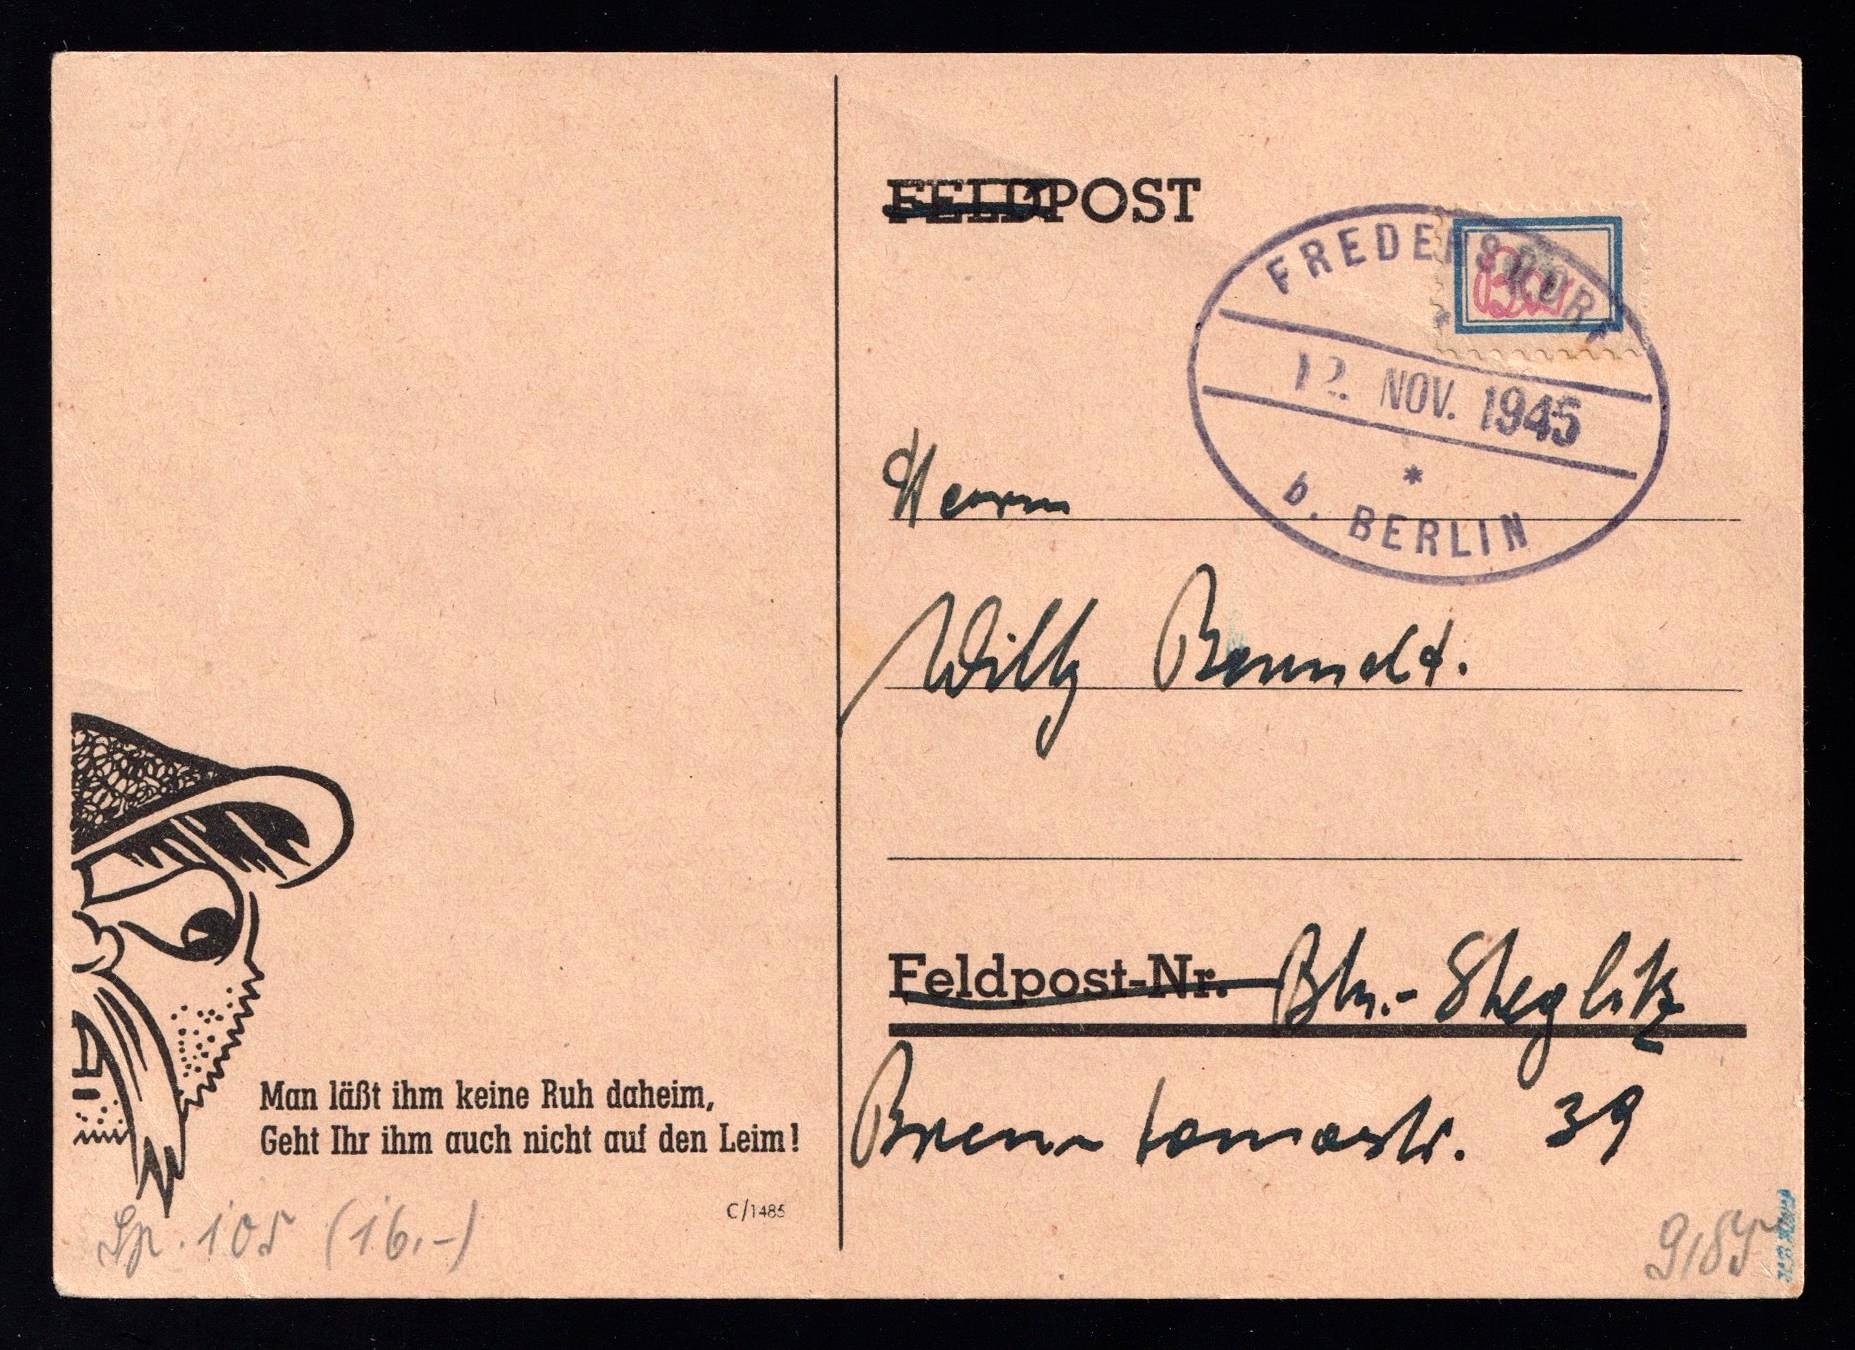 FELDPOST
FREDERSDORF
12. NOV. 1945
*
b. BERLIN
Herrn
Willy
Feldpost-Nr. Bln.-Steglitz
39
Man läßt ihm keine Ruh daheim,
Geht Ihr ihm auch nicht auf den Leim!
C/1485
Sp. 105 (16.-)